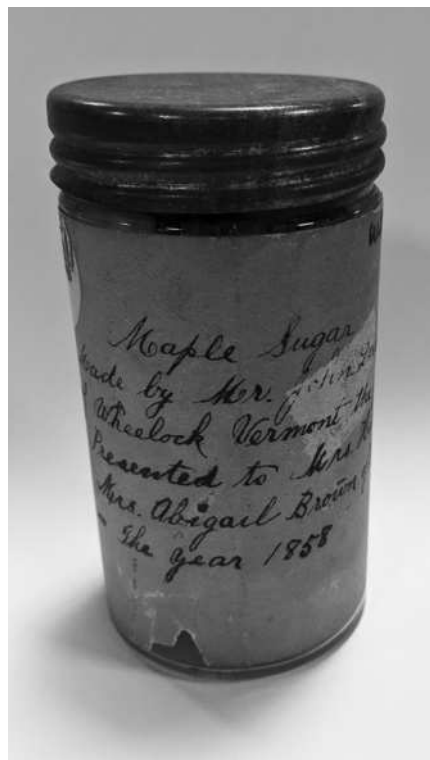 Maple Sugar
made by Mr. John
Wheelock Vermont the
Presented to Mrs.
Mrs. Abigail Brown
The year 1858